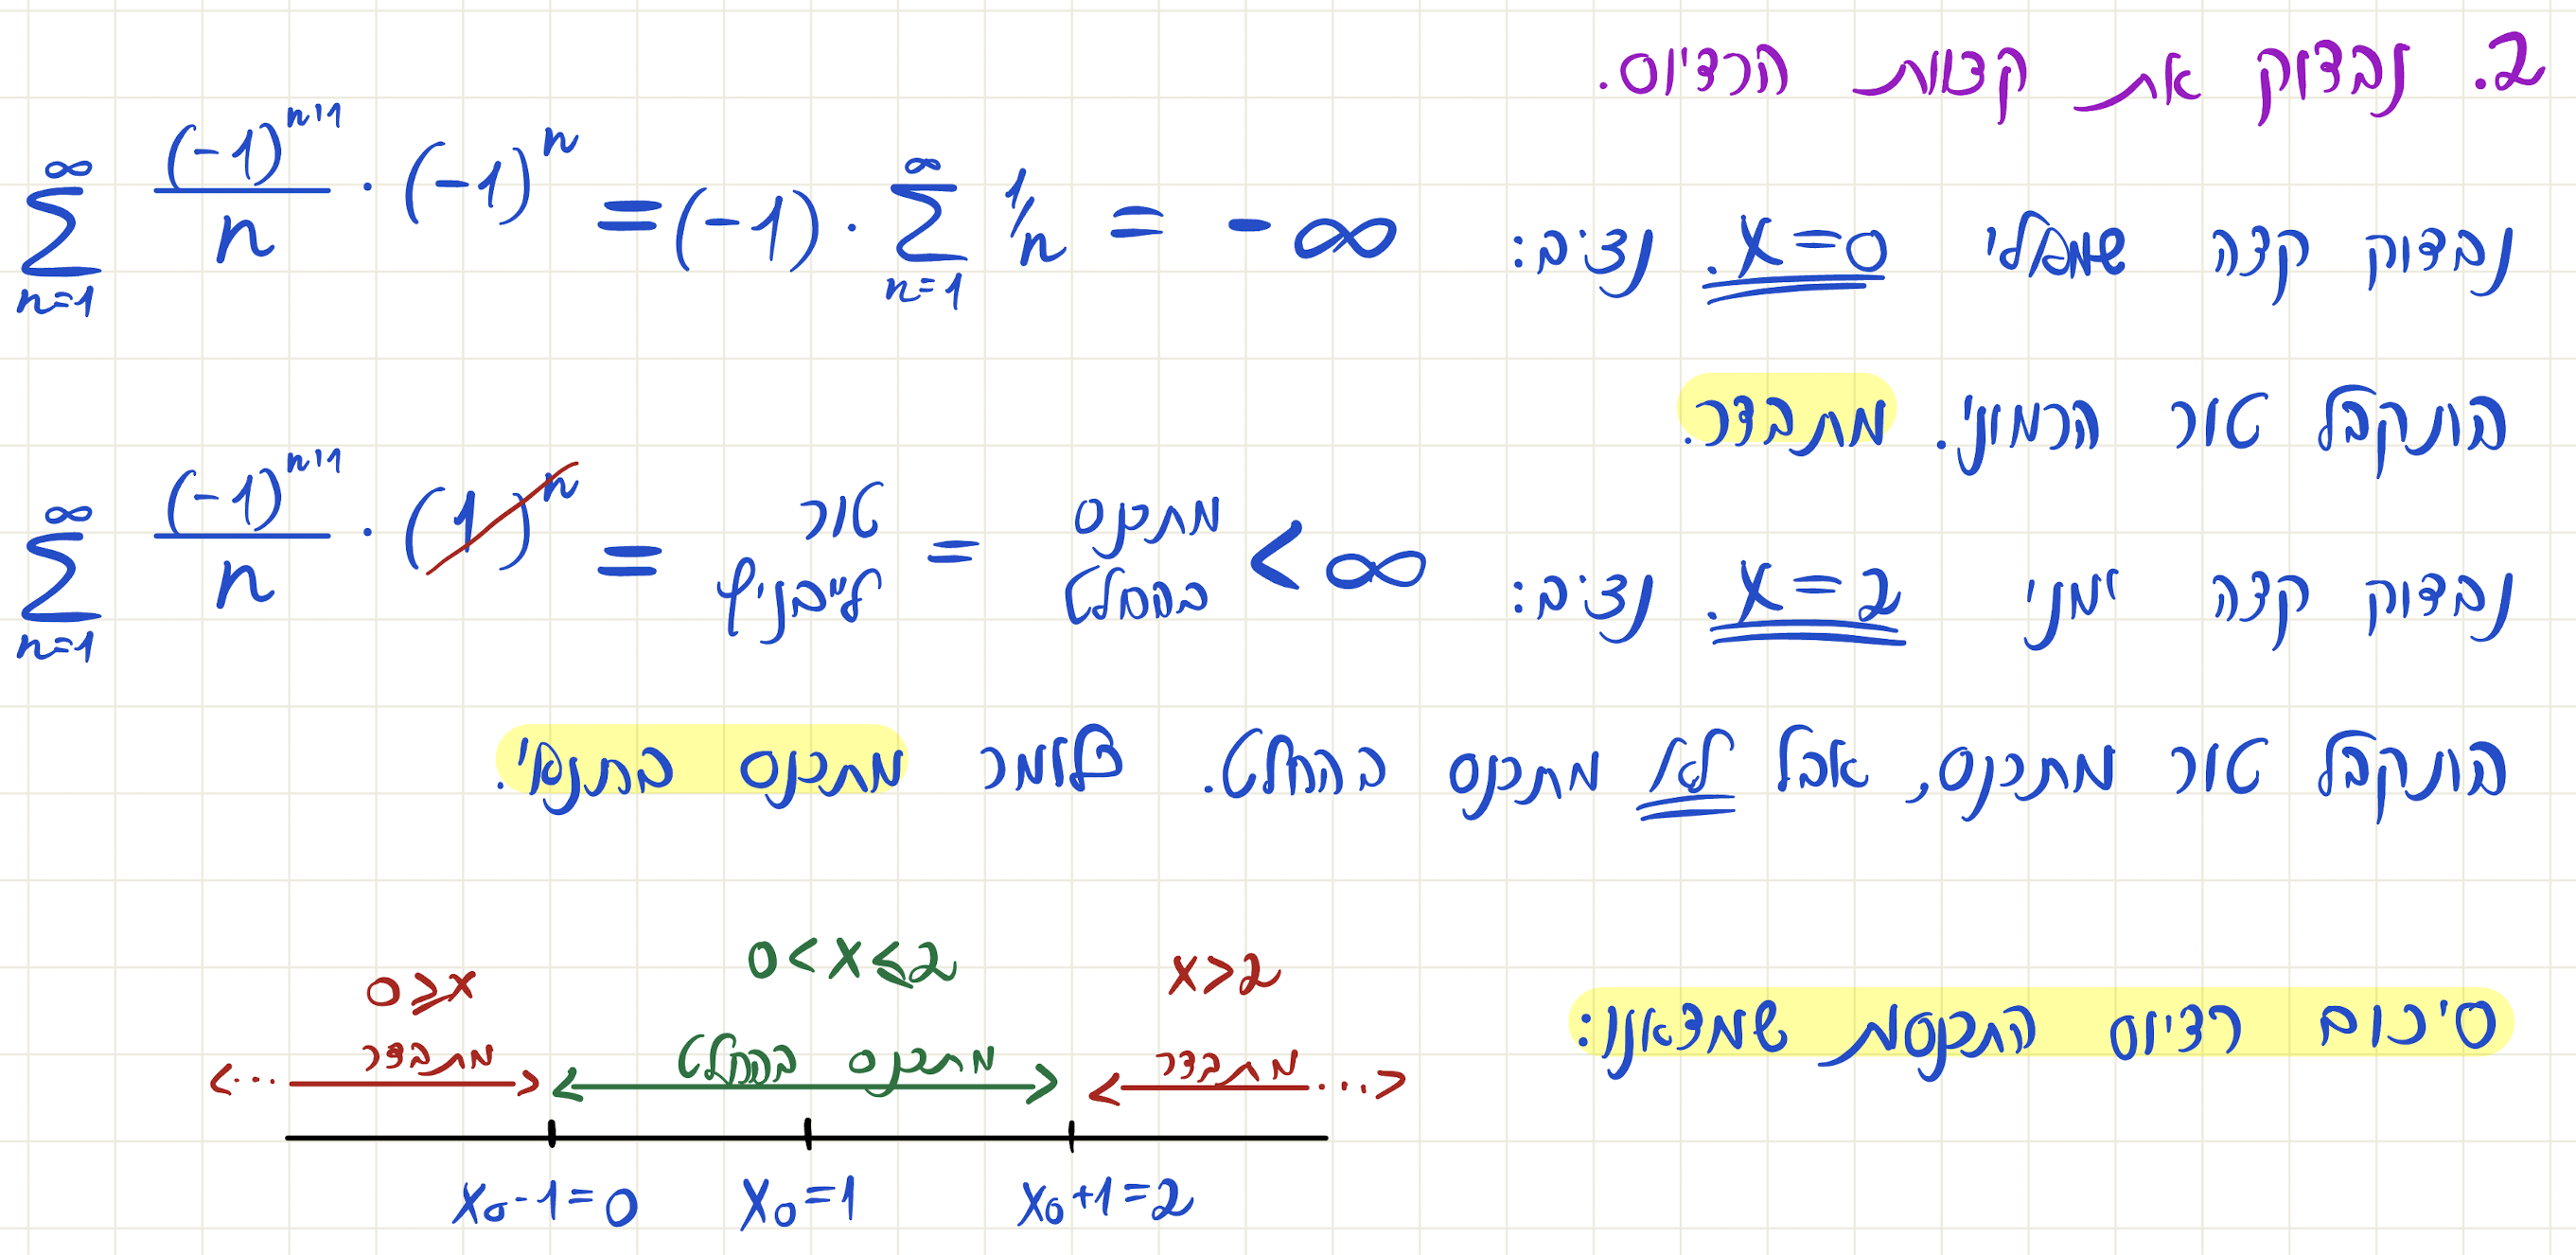 2. נבדוק את קצוות הרדיוס.
נבדוק קצה שמאלי x=0. נציב: \sum_{n=1}^{\infty} \frac{(-1)^{n+1}}{n} \cdot (-1)^n = (-1) \cdot \sum_{n=1}^{\infty} 1/n = -\infty
התקבל טור הרמוני. מתבדר.
נבדוק קצה ימני x=2. נציב: \sum_{n=1}^{\infty} \frac{(-1)^{n+1}}{n} \cdot (1)^n = טור לייבניץ = מתכנס בהחלט < \infty
התקבל טור מתכנס, אבל לא מתכנס בהחלט. כלומר מתכנס בתנאי.
סיכום רדיוס התכנסות שמצאנו:
0≥x 0<x≤2 x>2
מתבדר מתכנס בהחלט מתבדר
x₀-1=0 x₀=1 x₀+1=2